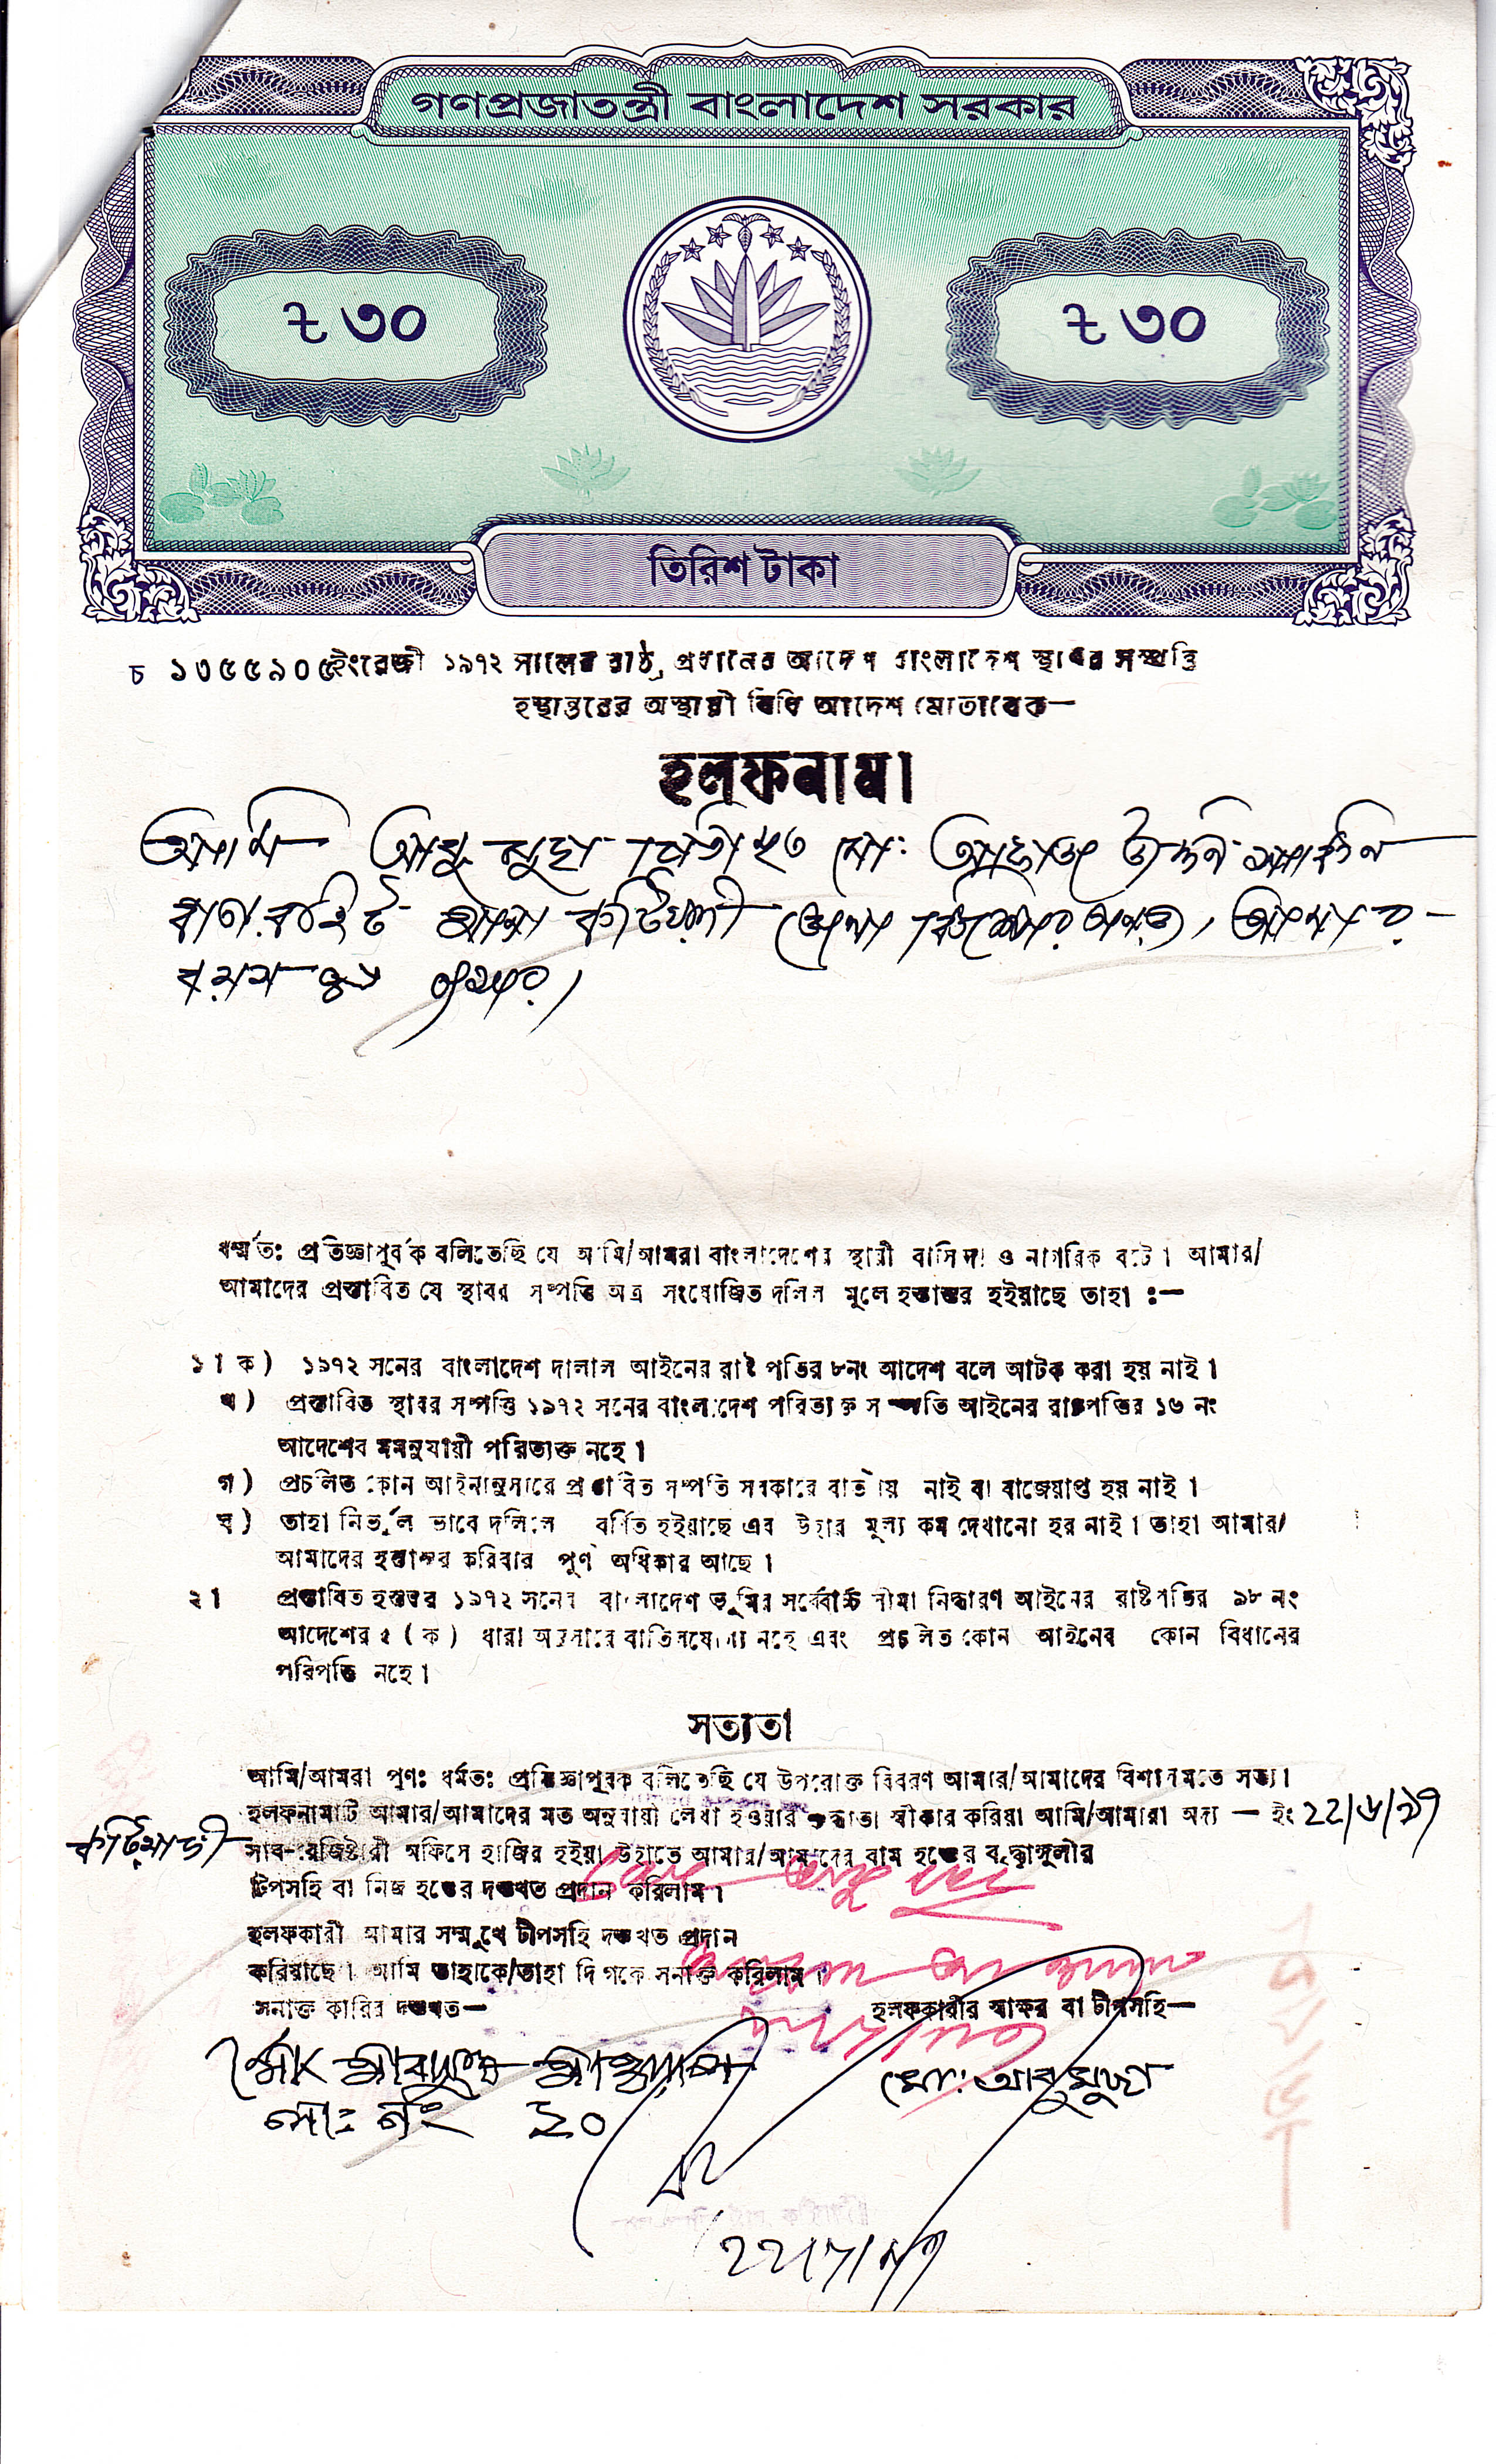 গণপ্রজাতন্ত্রী বাংলাদেশ সরকার
৳ ৩০ ৳ ৩০
তিরিশ টাকা
চ ১৩৫৫৯০৫ ইংরেজী ১৯৭২ সালের রাষ্ট্র প্রধানের আদেশ বাংলাদেশ স্থাবর সম্পত্তি
হস্থান্তরের অস্থায়ী বিধি আদেশ মোতাবেক—
হলফনামা
আমি আবু মুছা পিতা মৃত মো: সাকিন
থানা কটিয়াদী জেলা কিশোরগঞ্জ, আমার
বয়স বৎসর,
ধর্ম্মতঃ প্রতিজ্ঞাপূর্বক বলিতেছি যে আমি/আমরা বাংলাদেশের স্থায়ী বাসিন্দা ও নাগরিক বটে। আমার/
আমাদের প্রস্তাবিত যে স্থাবর সম্পত্তি অত্র সংযোজিত দলিল মুলে হস্তান্তর হইয়াছে তাহা :—
১। ক) ১৯৭২ সনের বাংলাদেশ দালাল আইনের রাষ্ট্রপতির ৮নং আদেশ বলে আটক করা হয় নাই।
খ) প্রস্তাবিত স্থাবর সম্পত্তি ১৯৭২ সনের বাংলাদেশ পরিত্যক্ত সম্পতি আইনের রাষ্ট্রপতির ১৬ নং
আদেশের মমনুযায়ী পরিত্যক্ত নহে।
গ) প্রচলিত কোন আইনানুসারে প্রস্তাবিত সম্পতি সরকারে বার্তায় নাই বা বাজেয়াপ্ত হয় নাই।
ঘ) তাহা নির্ভুল ভাবে দলিলে বর্ণিত হইয়াছে এবং উহার মূল্য কম দেখানো হয় নাই। তাহা আমার/
আমাদের হস্তান্তর করিবার পূর্ণ অধিকার আছে।
২। প্রস্তাবিত হস্তন্তর ১৯৭২ সনের বাংলাদেশ ভূমির সর্ব্বোচ্চ সীমা নিদ্ধারণ আইনের রাষ্টপতির ৯৮ নং
আদেশের ৫ (ক) ধারা অনুসারে বাতিলযোগ্য নহে এবং প্রচলিত কোন আইনের কোন বিধানের
পরিপন্তি নহে।
সত্যতা
আমি/আমরা পুণঃ ধর্মতঃ প্রতিজ্ঞাপূবক বলিতেছি যে উপরোক্ত বিবরণ আমার/আমাদের বিশ্বাসমতে সত্য।
হলফনামাটি আমার/আমাদের মত অনুযায়ী লেখা হওয়ার শুদ্ধতা স্বীকার করিয়া আমি/আমারা অদ্য — ইং 22/৬/৯৭
কটিয়াদী সাব-রেজিষ্টারী অফিসে হাজির হইয়া উহাতে আমার/আমাদের বাম হস্তের বৃদ্ধাঙ্গুলীর
টিপসহি বা নিজ হস্তের দস্তখত প্রদান করিলাম।
হলফকারী আমার সম্মুখে টীপসহি দস্তখত প্রদান
করিয়াছে। আমি তাহাকে/তাহা দিগকে সনাক্ত করিলাম।
সনাক্ত কারির দস্তখত— হলফকারীর স্বাক্ষর বা টীপসহি—
মো: আবু মুছা
সাঃ নং ২০